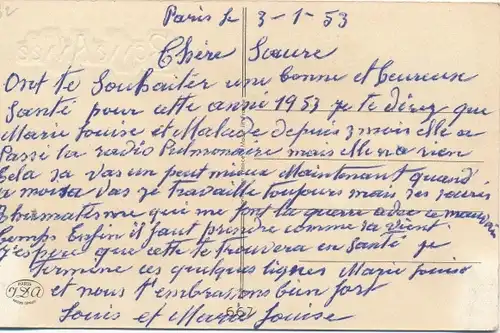 Paris le 3-1-53
Chère Sœure
Ont te Souhaiter une bonne et heureuse
Santé pour cette anné 1953 je te direz que
Marie Louise et Malade depuis 3 mois elle a
Passé la radio Pulmonaire mais elle n a rien
Cela sa vas un peut mieux Maintenant quand
a moi sa vas je travaille toujours mais
Rhumatisme qui me font la guerre avec ce mauvais
temps Enfin il faut prendre comme sa vient
J'espère que cette te trouvera en Santé je
termine ces quelques lignes Marie Louise
et nous t'embrassons bien fort
Louis et Marie Louise
PARIS
JDA
557
Bonne Année